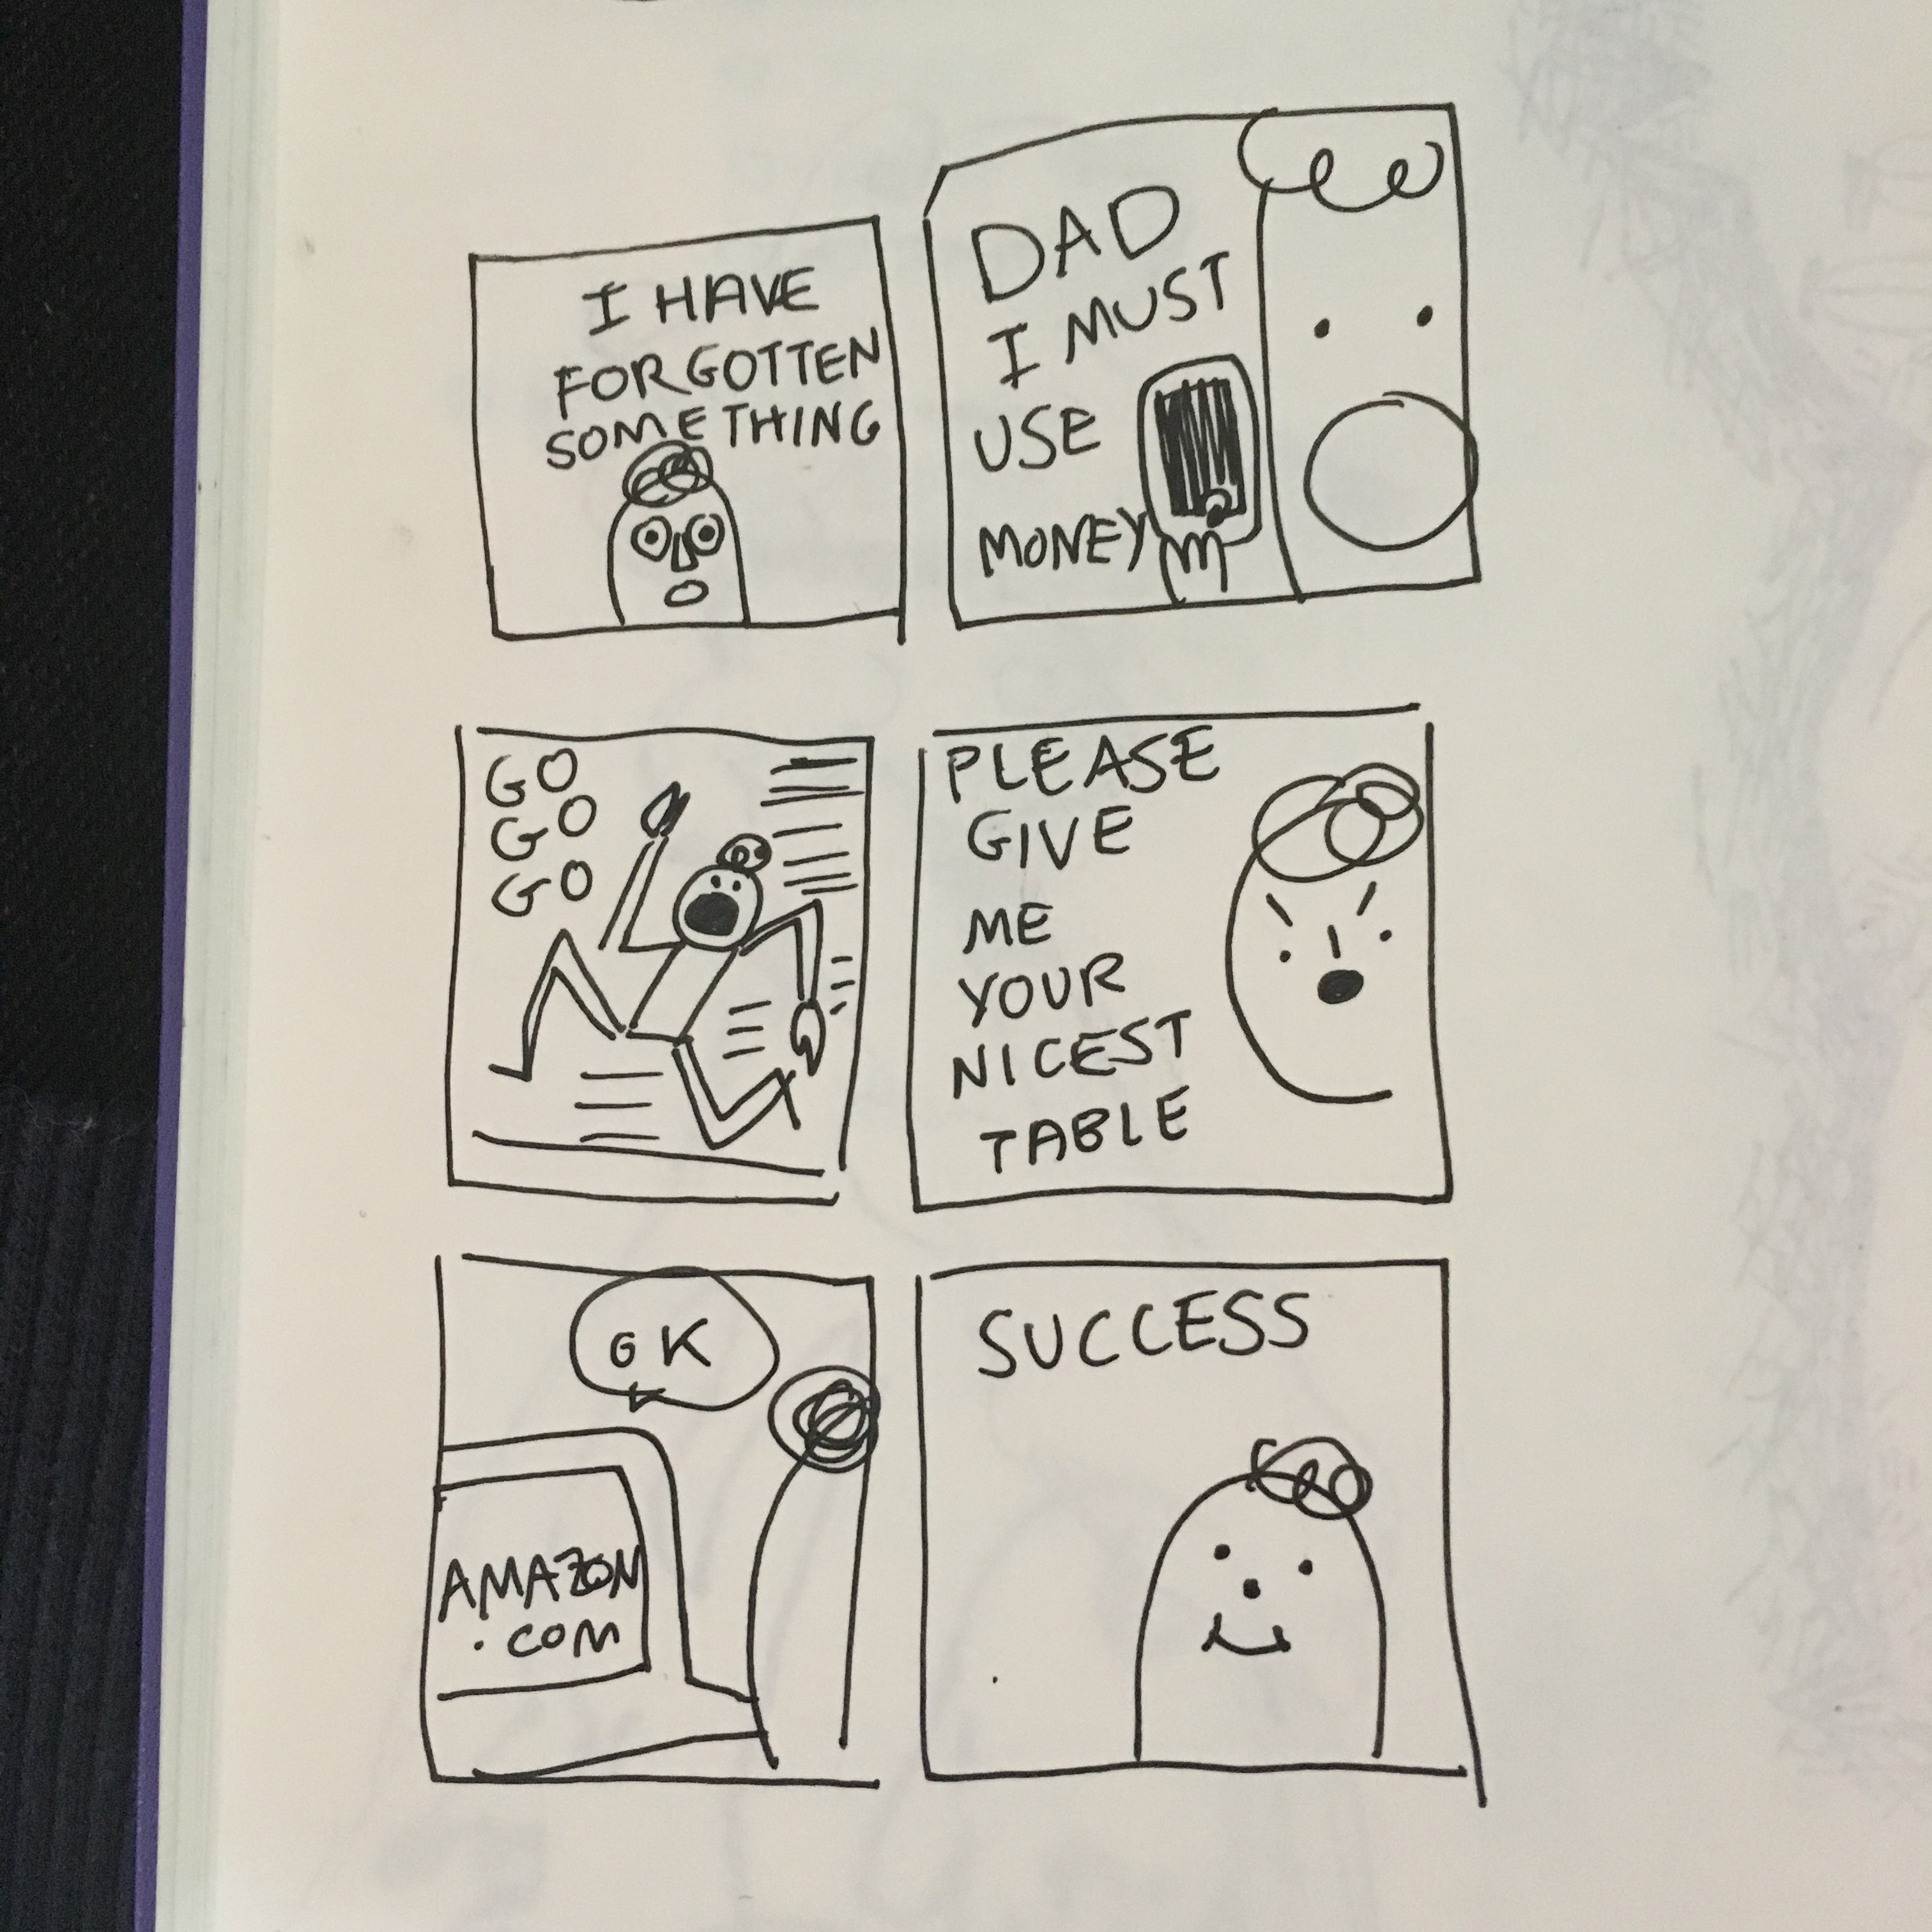 I HAVE
FORGOTTEN
SOMETHING
DAD
I MUST
USE
MONEY
GO
GO
GO
PLEASE
GIVE
ME
YOUR
NICEST
TABLE
OK
AMAZON
.COM
SUCCESS